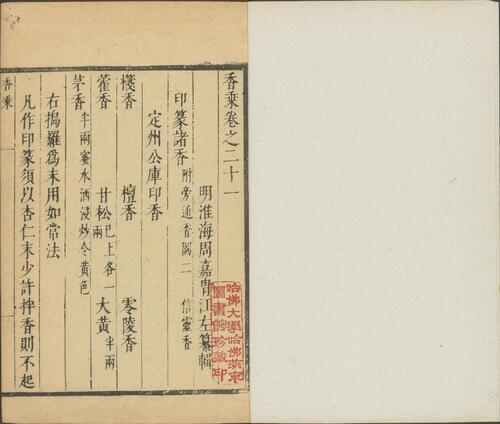 香乘卷之二十一
明淮海周嘉胄江左纂輯
印篆諸香附旁通香圖二 信靈香
定州公庫印香
棧香 檀香 零陵香
藿香 甘松已上各一兩 大黃半兩
茅香半兩蜜水酒浸炒令黃色
右搗羅爲末用如常法
凡作印篆須以杏仁末少許拌香則不起
香乘
哈佛大學哈佛燕京
圖書館珍藏印